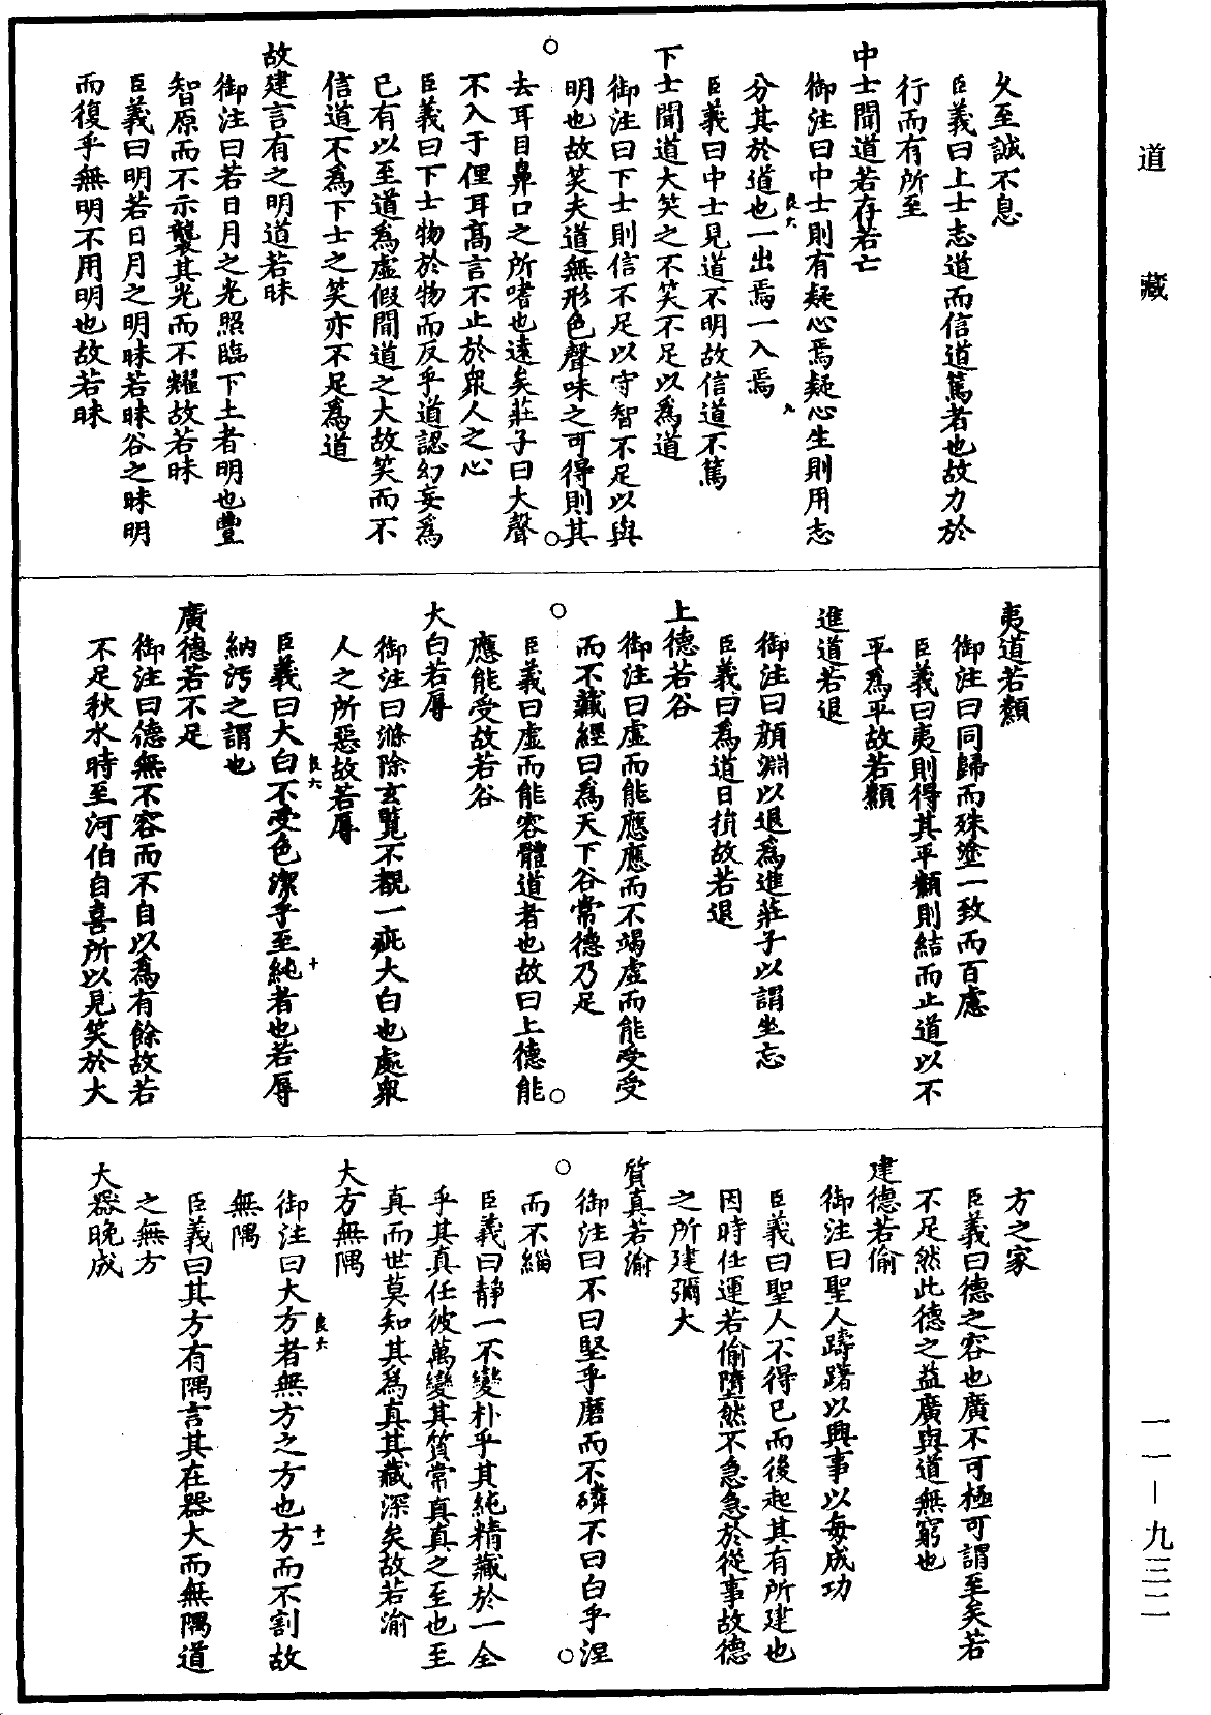 道藏
久至誠不息
臣義曰上士志道而信道篤者也故力於
行而有所至
中士聞道若存若亡
御注曰中士則有疑心焉疑心生則用志
分其於道也一出焉一入焉
良六
九
臣義曰中士見道不明故信道不篤
下士聞道大笑之不笑不足以為道
御注曰下士則信不足以守智不足以與
明也故笑夫道無形色聲味之可得則其
去耳目鼻口之所嗜也遠矣莊子曰大聲
不入于俚耳高言不止於衆人之心
臣義曰下士物於物而反乎道認幻妄為
已有以至道為虛假聞道之大故笑而不
信道不為下士之笑亦不足為道
故建言有之明道若昧
御注曰若日月之光照臨下土者明也豐
智原而不示襲其光而不耀故若昧
臣義曰明若日月之明昧若昧谷之昧明
而復乎無明不用明也故若昧
夷道若纇
御注曰同歸而殊塗一致而百慮
臣義曰夷則得其平纇則結而止道以不
平為平故若纇
進道若退
御注曰顏淵以退為進莊子以謂坐忘
臣義曰為道日損故若退
上德若谷
御注曰虛而能應應而不竭虛而能受受
而不藏經曰為天下谷常德乃足
臣義曰虛而能容體道者也故曰上德能
應能受故若谷
大白若辱
御注曰滌除玄覽不覩一疵大白也處衆
人之所惡故若辱
良六
十
臣義曰大白不受色潔乎至純者也若辱
納汚之謂也
廣德若不足
御注曰德無不容而不自以為有餘故若
不足秋水時至河伯自喜所以見笑於大
方之家
臣義曰德之容也廣不可極可謂至矣若
不足然此德之益廣與道無窮也
建德若偷
御注曰聖人躊躇以興事以每成功
臣義曰聖人不得已而後起其有所建也
因時任運若偷墮然不急急於從事故德
之所建彌大
質真若渝
御注曰不曰堅乎磨而不磷不曰白乎涅
而不緇
臣義曰靜一不變朴乎其純精藏於一全
乎其真任彼萬變其質常真真之至也至
真而世莫知其為真其藏深矣故若渝
大方無隅
御注曰大方者無方之方也方而不割故
無隅
良六
十一
臣義曰其方有隅言其在器大而無隅道
之無方
大器晚成
一一—九三二